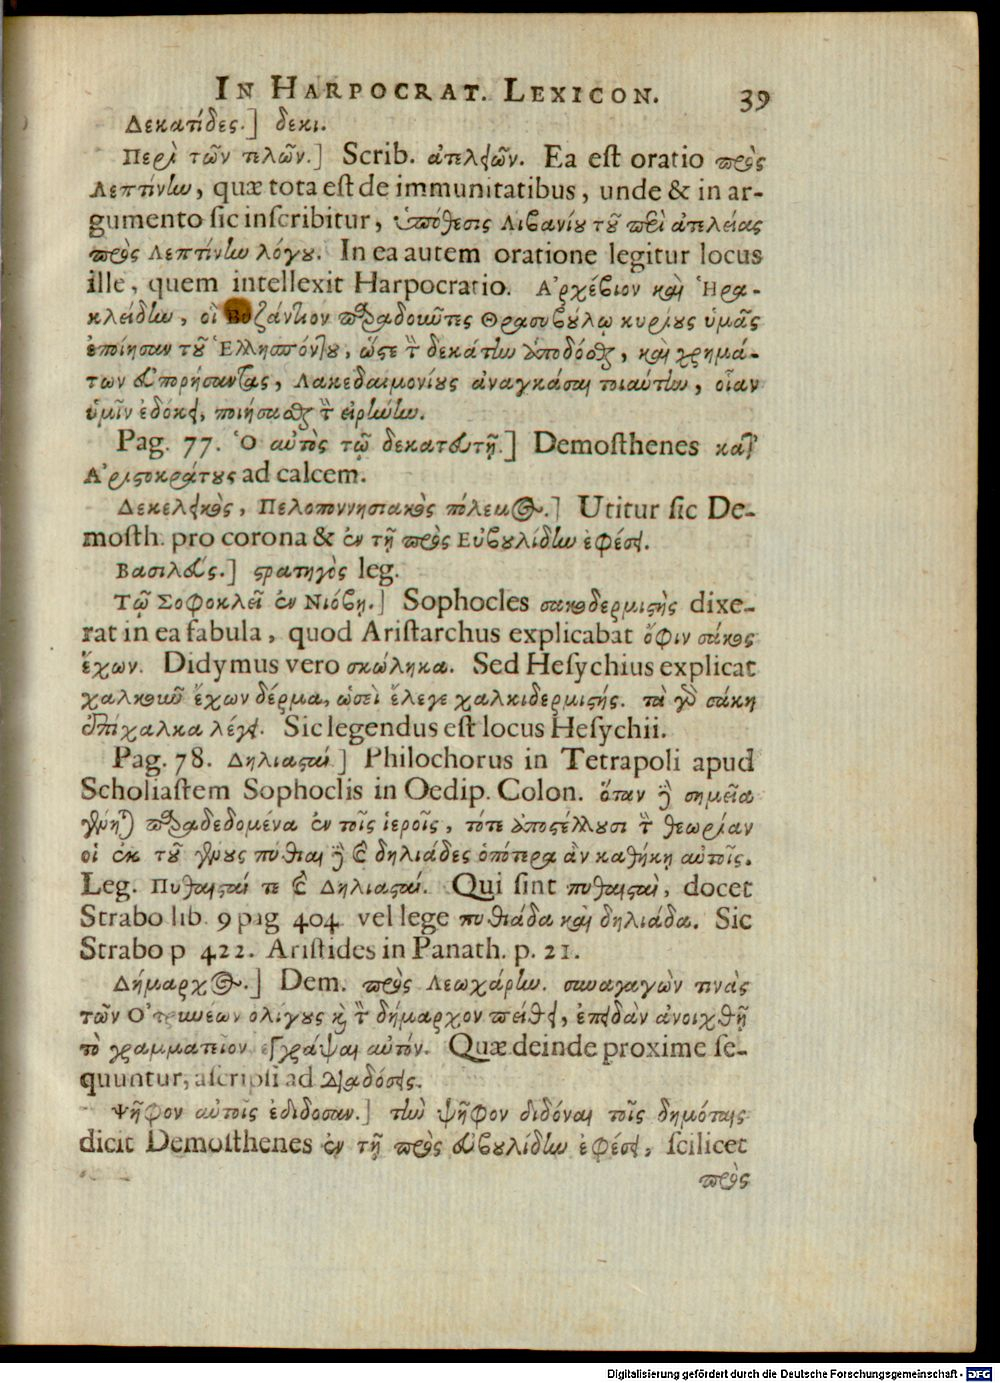 IN HARPOCRAT. LEXICON. 39
Δεκατίδες.] δεκι.
Περὶ τῶν τελῶν.] Scrib. ἀτελειῶν. Ea est oratio πρὸς
Λεπτίνην, quæ tota est de immunitatibus, unde & in ar-
gumento sic inscribitur, ὑπόθεσις Λιβανίου τοῦ περὶ ἀτελείας
πρὸς Λεπτίνην λόγου. In ea autem oratione legitur locus
ille, quem intellexit Harpocratio. Ἀρχέβιον καὶ Ἡρα-
κλείδην, οἳ Βυζάντιον παραδόντες Θρασυβούλῳ κυρίους ὑμᾶς
ἐποίησαν τοῦ Ἑλλησπόντου, ὥστε τὴν δεκάτην ἀποδόσθαι, καὶ χρημά-
των εὐπορήσαντας, Λακεδαιμονίους ἀναγκάσαι τοιαύτην, οἵαν
ὑμῖν ἐδόκει, ποιήσασθαι τὴν εἰρήνην.
Pag. 77. Ὁ αὐτὸς τῷ δεκατευτῇ.] Demosthenes κατ'
Ἀριστοκράτους ad calcem.
Δεκελεικὸς, Πελοποννησιακὸς πόλεμος.] Utitur sic De-
mosth. pro corona & ἐν τῇ πρὸς Εὐβουλίδην ἐφέσει.
Βασιλεύς.] στρατηγὸς leg.
Τῷ Σοφοκλεῖ ἐν Νιόβῃ.] Sophocles σακοδερμιστὴς dixe-
rat in ea fabula, quod Aristarchus explicabat ὄφιν σάκος
ἔχων. Didymus vero σκώληκα. Sed Hesychius explicat
χαλκοῦν ἔχων δέρμα, ὡσεὶ ἔλεγε χαλκιδερμιστής. τὰ γὰρ σάκη
ἐπίχαλκα λέγει. Sic legendus est locus Hesychii.
Pag. 78. Δηλιασταί.] Philochorus in Tetrapoli apud
Scholiastem Sophoclis in Oedip. Colon. ὅταν δὲ σημεῖα
γένηται παραδεδομένα ἐν τοῖς ἱεροῖς, τότε ἀποστέλλουσι τὴν θεωρίαν
οἱ ἐκ τοῦ γένους πυθιαι δὲ καὶ δηλιάδες ὁπότερα ἂν καθήκῃ αὐτοῖς.
Leg. Πυθαισταί τε καὶ Δηλιασταί. Qui sint πυθαισταὶ, docet
Strabo lib. 9 pag 404 vel lege πυθιάδα καὶ δηλιάδα. Sic
Strabo p 422. Aristides in Panath. p. 21.
Δήμαρχος.] Dem. πρὸς Λεωχάρην. συναγαγὼν τινὰς
τῶν Ὀτρυνέων ὀλίγους καὶ τὸν δήμαρχον πείθει, ἐπειδὰν ἀνοιχθῇ
τὸ γραμματεῖον ἐγγράψαι αὐτόν. Quæ deinde proxime se-
quuntur, ascripsi ad Διαδόσεις.
Ψῆφον αὐτοῖς ἐδίδοσαν.] τὴν ψῆφον διδόναι τοῖς δημόταις
dicit Demosthenes ἐν τῇ πρὸς εὐβουλίδην ἐφέσει, scilicet
πρὸς
Digitalisierung gefördert durch die Deutsche Forschungsgemeinschaft - DFG